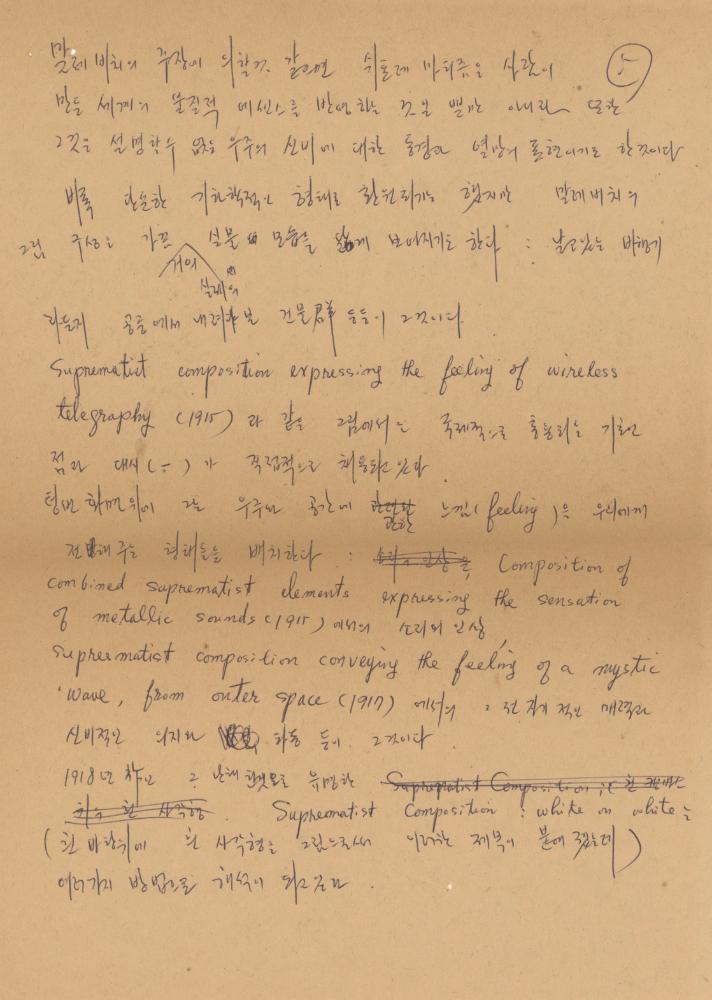 말레비치의 주장에 의할것 같으면 쉬프레마티즘은 사람이 5
만든 세계의 물질적 에센스를 반영하는 것일 뿐만 아니라 또한
그것은 설명할수 없는 우주의 신비에 대한 동경과 열망의 표현이기도 한것이다
비록 단순한 기하학적인 형태로 환원되기는 했지만 말레비치의
그림 주성은 가끔 실물의 모습을 닮게 보여지기도 한다 : 날고있는 비행기
거의
실제의
라든지 공중에서 내려다 본 건물群 등등이 그것이다.
Suprematist composition expressing the feeling of wireless
telegraphy (1915) 과 같은 그림에서는 국제적으로 통용되는 기호인
점과 대시(-)가 직접적으로 채용되고 있다
텅빈 화면위에 그는 우주와 공간에 관한 느낌(feeling)을 우리에게
전해주는 형태들을 배치한다 : 소리의 인상을, Composition of
combined suprematist elements expressing the sensation
of metallic sounds (1915) 에서의 소리의 인상,
Suprematist composition conveying the feeling of a mystic
'wave, from outer space (1917) 에서의 전자기적인 매력과
신비적인 의지와 파동 등이 그것이다
1918년 그 난해함으로 유명한 Suprematist Composition :
흰 사각형. Suprematist Composition : white on white는
(흰 바탕위에 흰 사각형을 그림으로써 이러한 제목이 붙여졌는데)
여러가지 방법으로 해석이 되고 있다.